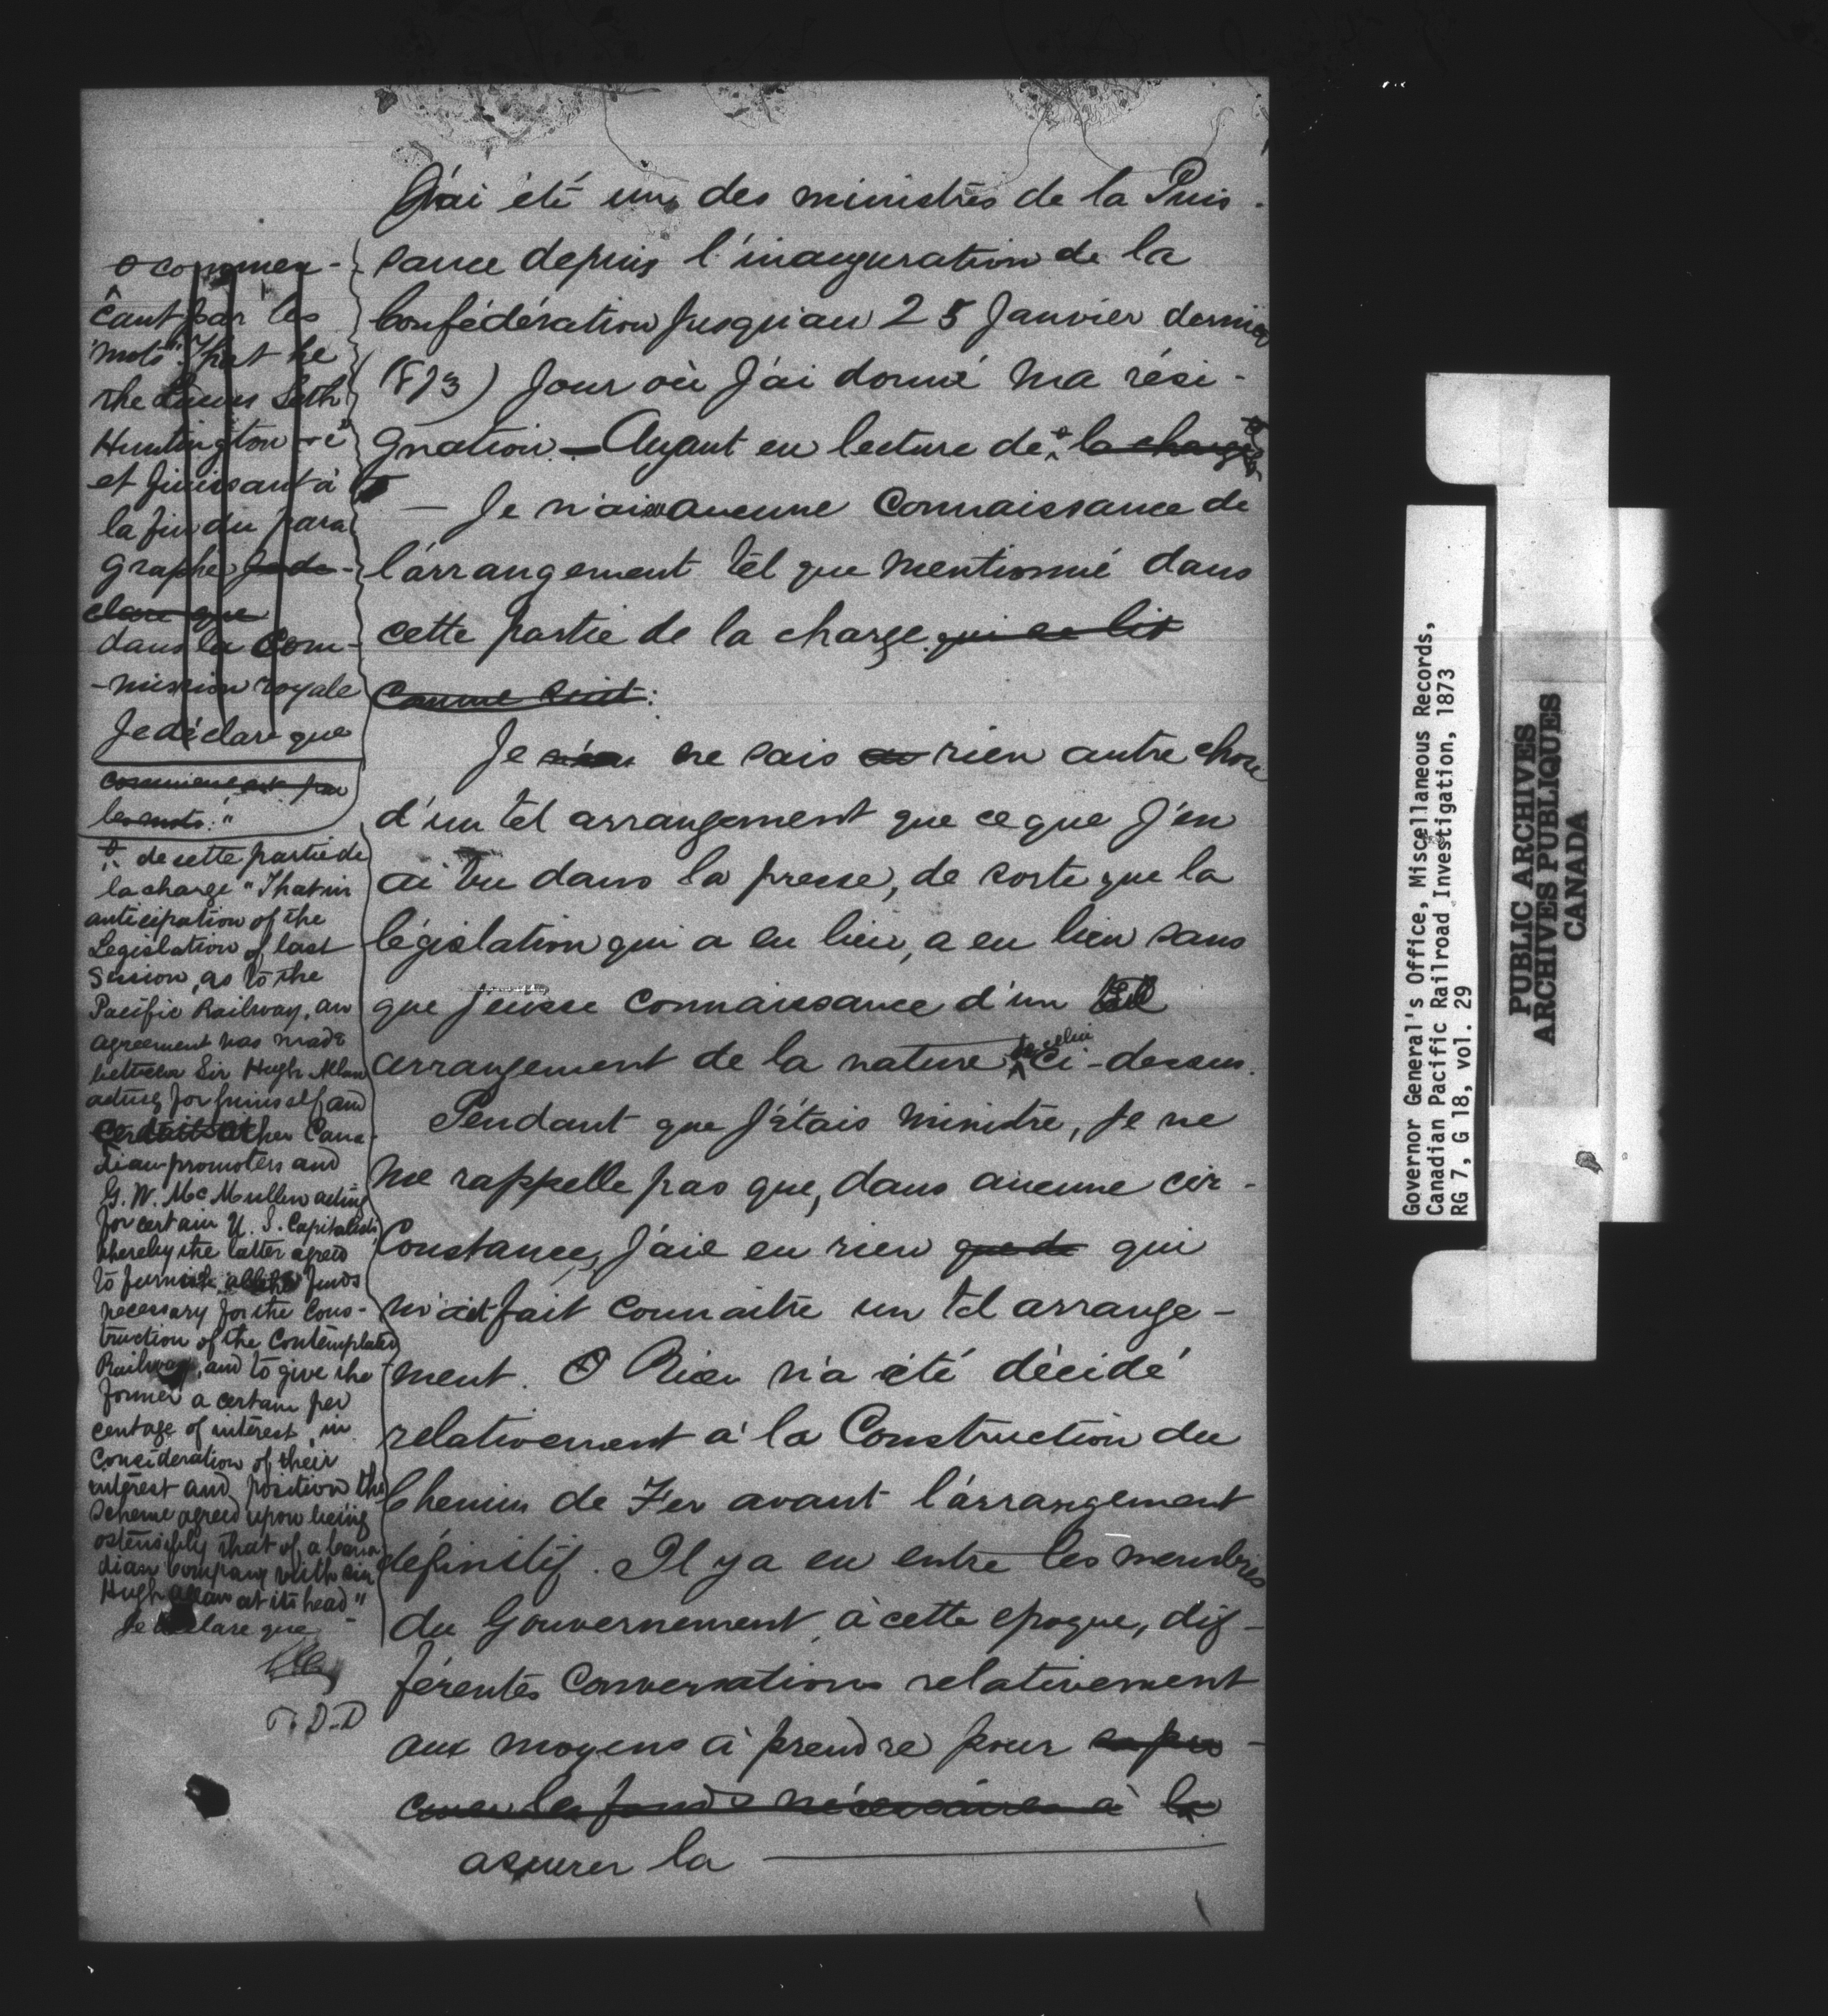 J'ai été un des ministres de la Puis-
sance depuis l'inauguration de la
Confédération Jusqu'au 25 Janvier dernier
(873) Jour où J'ai donné ma rési-
gnation — Ayant eu lecture de la charge
— Je n'ai aucune Connaissance de
l'arrangement tel que Mentionné dans
cette partie de la charge qui se lit
Comme suit:
Je ne sais rien autre chose
d'un tel arrangement que ce que J'en
ai vu dans la presse, de sorte que la
législation qui a eu lieu, a eu lieu sans
que J'eusse Connaissance d'un tel
arrangement de la nature de celui ci-dessus.
Pendant que J'étais Ministre, Je ne
me rappelle pas que, dans aucune cir-
Constance, J'aie eu rien que de qui
m'ait fait Connaitre un tel arrange-
ment. Rien n'a été décidé
relativement à la Construction du
Chemin de Fer avant l'arrangement
définitif. Il y a eu entre les membres
du Gouvernement à cette epoque, dif-
férentes Conversations relativement
aux moyens à prendre pour se pro-
curer les fonds nécessaires à la
assurer la
o commen-
çant par les
mots "That he
the said Lucius Seth
Huntington
et finissant à
la fin du para
graphe Je dé-
clare que
dans la Com-
-mission royale
Je déclare que
commencant par
les mots: "
de cette partie de
la charge "That in
anticipation of the
Legislation of last
Session, as to the
Pacific Railway, an
agreement was made
between Sir Hugh Allan
acting for himself and
certain other Cana-
dian promoters and
G. W. McMullen acting
for certain U. S. Capitalists
whereby the latter agreed
to furnish all the funds
necessary for the Cons-
truction of the Contemplated
Railway, and to give the
former a certain per
centage of interest, in
Consideration of their
interest and position the
Scheme agreed upon being
ostensibly that of a Cana
dian Company with Sir
Hugh Allan at its head"
Je declare que
D.D
Governor General's Office, Miscellaneous Records,
Canadian Pacific Railroad Investigation, 1873
RG 7, G 18, vol. 29
PUBLIC ARCHIVES
ARCHIVES PUBLIQUES
CANADA